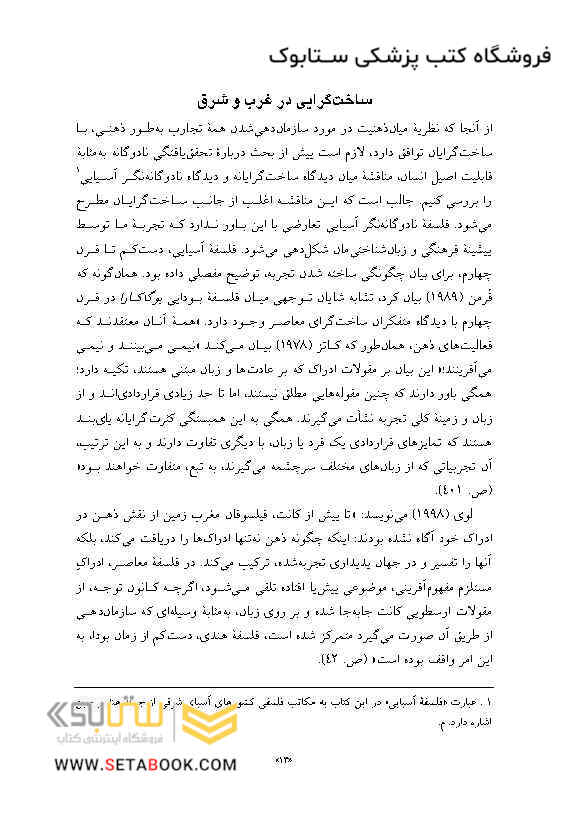 فروشگاه کتب پزشکی ستابوک
ساخت‌گرایی در غرب و شرق
از آنجا که نظریهٔ میان‌ذهنیت در مورد سازمان‌دهی‌شدن همهٔ تجارب به‌طور ذهنی، با
ساخت‌گرایان توافق دارد، لازم است پیش از بحث دربارهٔ تحقق‌یافتگی نادوگانه به‌مثابهٔ
قابلیت اصیل انسان، مناقشهٔ میان دیدگاه ساخت‌گرایانه و دیدگاه نادوگانه‌نگر آسیایی۱
را بررسی کنیم. جالب است که این مناقشه اغلب از جانب ساخت‌گرایان مطرح
می‌شود. فلسفهٔ نادوگانه‌نگر آسیایی تعارضی با این باور ندارد که تجربهٔ ما توسط
پیشینهٔ فرهنگی و زبان‌شناختی‌مان شکل‌دهی می‌شود. فلسفهٔ آسیایی، دست‌کم تا قرن
چهارم، برای بیان چگونگی ساخته شدن تجربه، توضیح مفصلی داده بود. همان‌گونه که
فُرمن (۱۹۸۹) بیان کرد، تشابه شایان توجهی میان فلسفهٔ بودایی یوگاکارا در قرن
چهارم با دیدگاه متفکران ساخت‌گرای معاصر وجود دارد. «همهٔ آنان معتقدند که
فعالیت‌های ذهن، همان‌طور که کاتز (۱۹۷۸) بیان می‌کند «نیمی می‌بینند و نیمی
می‌آفرینند؛» این بیان بر مقولات ادراک که بر عادت‌ها و زبان مبتنی هستند، تکیه دارد؛
همگی باور دارند که چنین مقوله‌هایی مطلق نیستند، اما تا حد زیادی قراردادی‌اند و از
زبان و زمینهٔ کلی تجربه نشأت می‌گیرند. همگی به این همبستگی کثرت‌گرایانه پای‌بند
هستند که تمایزهای قراردادی یک فرد یا زبان، با دیگری تفاوت دارند و به این ترتیب،
آن تجربیاتی که از زبان‌های مختلف سرچشمه می‌گیرند، به تبع، متفاوت خواهند بود»
(ص. ۴۰۱).
لوی (۱۹۹۸) می‌نویسد: «تا پیش از کانت، فیلسوفان مغرب زمین از نقش ذهن در
ادراک خود آگاه نشده بودند: اینکه چگونه ذهن نه‌تنها ادراک‌ها را دریافت می‌کند، بلکه
آنها را تفسیر و در جهان پدیداری تجربه‌شده، ترکیب می‌کند. در فلسفهٔ معاصر، ادراکِ
مستلزم مفهوم‌آفرینی، موضوعی پیش‌پا افتاده تلقی می‌شود، اگرچه کانون توجه، از
مقولات ارسطویی کانت جابه‌جا شده و بر روی زبان، به‌مثابهٔ وسیله‌ای که سازمان‌دهی
از طریق آن صورت می‌گیرد متمرکز شده است، فلسفهٔ هندی، دست‌کم از زمان بودا، به
این امر واقف بوده است» (ص. ۴۲).
۱ . عبارت «فلسفهٔ آسیایی» در این کتاب به مکاتب فلسفی کشورهای آسیای شرقی از
اشاره دارد. م.
ستابوک SETABOOK
فروشگاه اینترنتی کتاب
WWW.SETABOOK.COM
«۱۳»